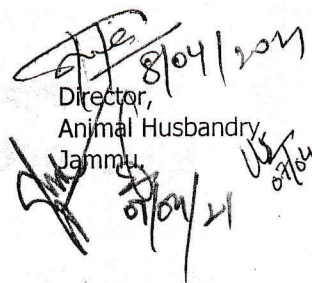 8/04/2021
Director,
Animal Husbandry,
Jammu.
07/04/21
07/04